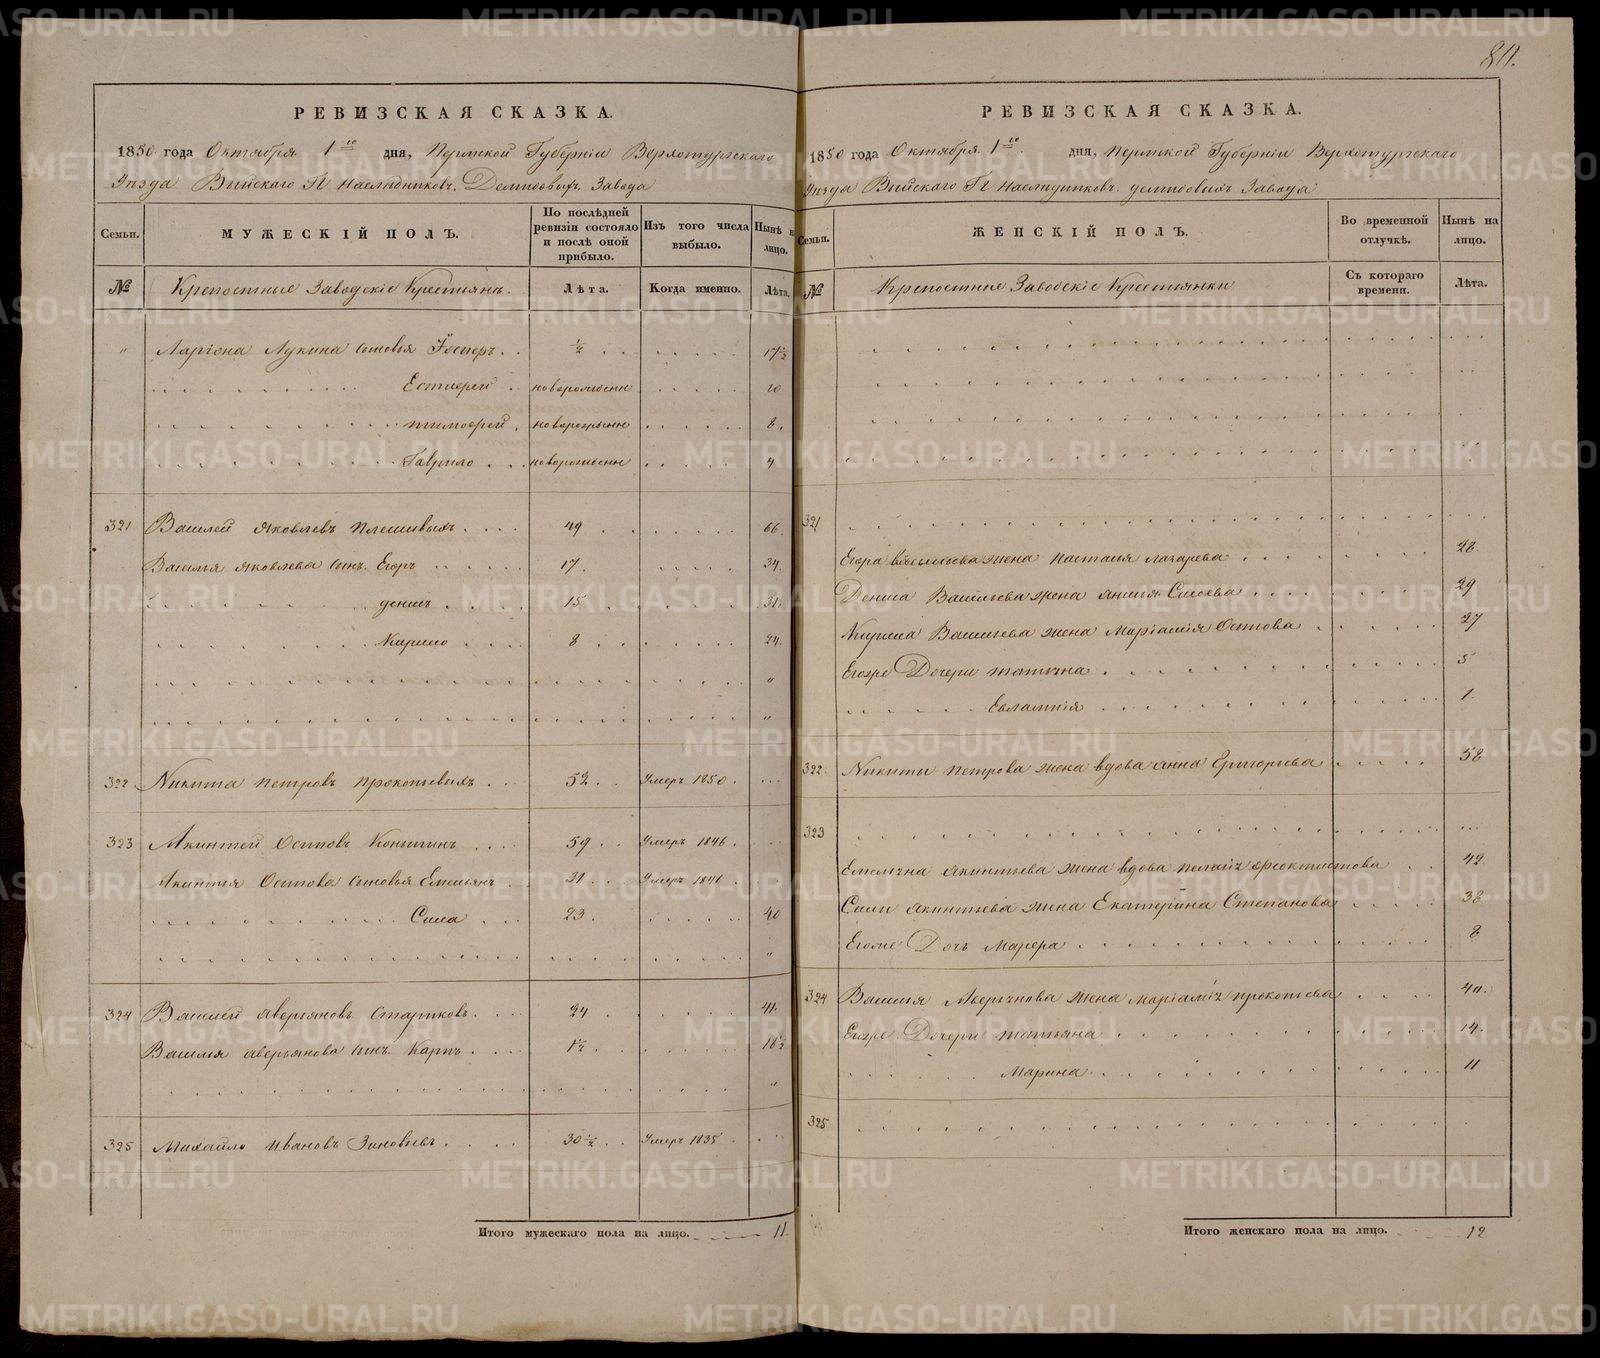 811.
РЕВИЗСКАЯ СКАЗКА.
1850 года Октября 1го дня, Пермской Губерніи Верхотурскаго
Уѣзда Выйскаго Гг Наслѣдниковъ Демидовыхъ Завода
Семьи.
МУЖЕСКІЙ ПОЛЪ.
По послѣдней ревизіи состояло и послѣ оной прибыло.
Изъ того числа выбыло.
Нынѣ на лицо.
№
Крепостные Заводскіе Крестьянъ.
Лѣта.
Когда именно.
Лѣта.
" Ларіона Лукина сыновья 1/2 17 1/2
Естиѳей новорожденн 10
Тимоѳей новорожденн 8
Гаврило новорожденн 4
321 Василей Яковлевъ Плешивыхъ 49 66
Василья Яковлева сынъ Егоръ 17 34
Денисъ 15 31
Кирило 8 24
"
"
322 Никита Петровъ Прокопьевыхъ 52 Умеръ 1850
323 Акинтей Осиповъ Коньшинъ 59 Умеръ 1846
Акинтія Осипова сыновья Емельянъ 31 Умеръ 1841
Сила 23 40
"
324 Василей Аверьяновъ Стариковъ 24 41
Василья Аверьянова сынъ Карпъ 1 1/2 18 1/2
"
325 Михайло Ивановъ Зиновьевъ 30 1/2 Умеръ 1835
Итого мужескаго пола на лицо. 11
РЕВИЗСКАЯ СКАЗКА.
1850 года Октября 1го дня, Пермской Губерніи Верхотурскаго
Уѣзда Выйскаго Гг Наслѣдниковъ Демидовыхъ Завода
Семьи.
ЖЕНСКІЙ ПОЛЪ.
Во временной отлучкѣ.
Нынѣ на лицо.
№
Крепостные Заводскіе Крестьянки
Съ котораго времени.
Лѣта.
321
Егора Васильева жена Настасья Лазарева 28
Дениса Васильева жена Анисья Сысоева 29
Кирила Васильева жена Маріамія Осипова 27
Егоре Дочери Татьяна 5
Евлампія 1
322 Никиты Петрова жена вдова Анна Григорьева 58
323
Емельяна Акинтьева жена вдова Пелагія Феоктистова 42
Силы Акинтьева жена Екатерина Степанова 38
Егоме Дочь Марфа 8
324 Василья Аверьянова жена Маріамія Прокопьева 40
Егоре Дочери Татьяна 14
Марина 11
325
Итого женскаго пола на лицо. 12
METRIKI.GASO-URAL.RU